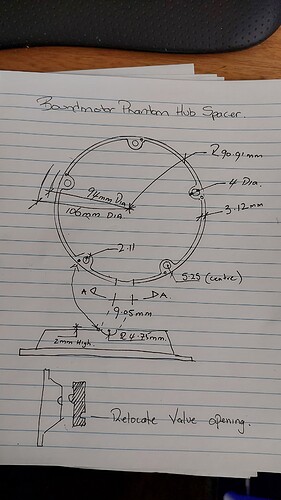 Boundmotor Phantom Hub Spacer.
R90.91mm
4 Dia.
94mm Dia
106mm DIA.
3.12mm
2.11
5.25 (centre)
9.05mm.
R4.75mm.
2mm High.
Relocate Valve opening.